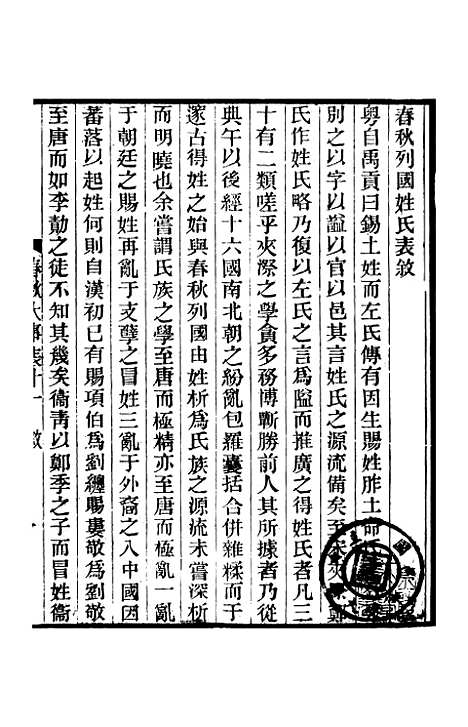 春秋列國姓氏表敘
粵自禹貢曰錫土姓而左氏傳有因生賜姓胙土命氏
別之以字以謚以官以邑其言姓氏之源流備矣至宋鄭
氏作姓氏略乃復以左氏之言為隘而推廣之得姓氏者凡三
十有二類嗟乎夾漈之學貪多務博斬勝前人其所據者乃從
典午以後經十六國南北朝之紛亂包羅囊括合併雜糅而于
邃古得姓之始與春秋列國由姓析為氏族之源流未嘗深析
而明曉也余嘗謂氏族之學至唐而極精亦至唐而極亂一亂
于朝廷之賜姓再亂于支孽之冒姓三亂于外裔之入中國因
蕃落以起姓何則自漢初已有賜項伯為劉纏賜婁敬為劉敬
至唐而如李勣之徒不知其幾矣衞青以鄭季之子而冒姓衞
春秋大事表十一 敘